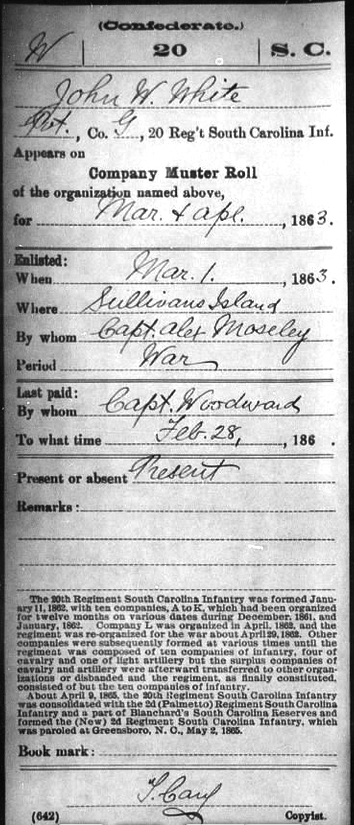 (Confederate.)
W 20 S. C.
John W. White
Pvt., Co. G, 20 Reg't South Carolina Inf.
Appears on
Company Muster Roll
of the organization named above,
for Mar. & Apl., 1863.
Enlisted:
When Mar. 1., 1863.
Where Sullivans Island
By whom Capt. Alex Moseley
Period War
Last paid:
By whom Capt. Woodward
To what time Feb. 28, , 186 .
Present or absent Present
Remarks:
The 20th Regiment South Carolina Infantry was formed Janu-
ary 11, 1862, with ten companies, A to K, which had been organized
for twelve months on various dates during December, 1861, and
January, 1862. Company L was organized in April, 1862, and the
regiment was re-organized for the war about April 29, 1862. Other
companies were subsequently formed at various times until the
regiment was composed of ten companies of infantry, four of
cavalry and one of light artillery but the surplus companies of
cavalry and artillery were afterward transferred to other organ-
izations or disbanded and the regiment, as finally constituted,
consisted of but the ten companies of infantry.
About April 9, 1865, the 20th Regiment South Carolina Infantry
was consolidated with the 2d (Palmetto) Regiment South Carolina
Infantry and a part of Blanchard's South Carolina Reserves and
formed the (New) 2d Regiment South Carolina Infantry, which
was paroled at Greensboro, N. C., May 2, 1865.
Book mark:
(642) Copyist.